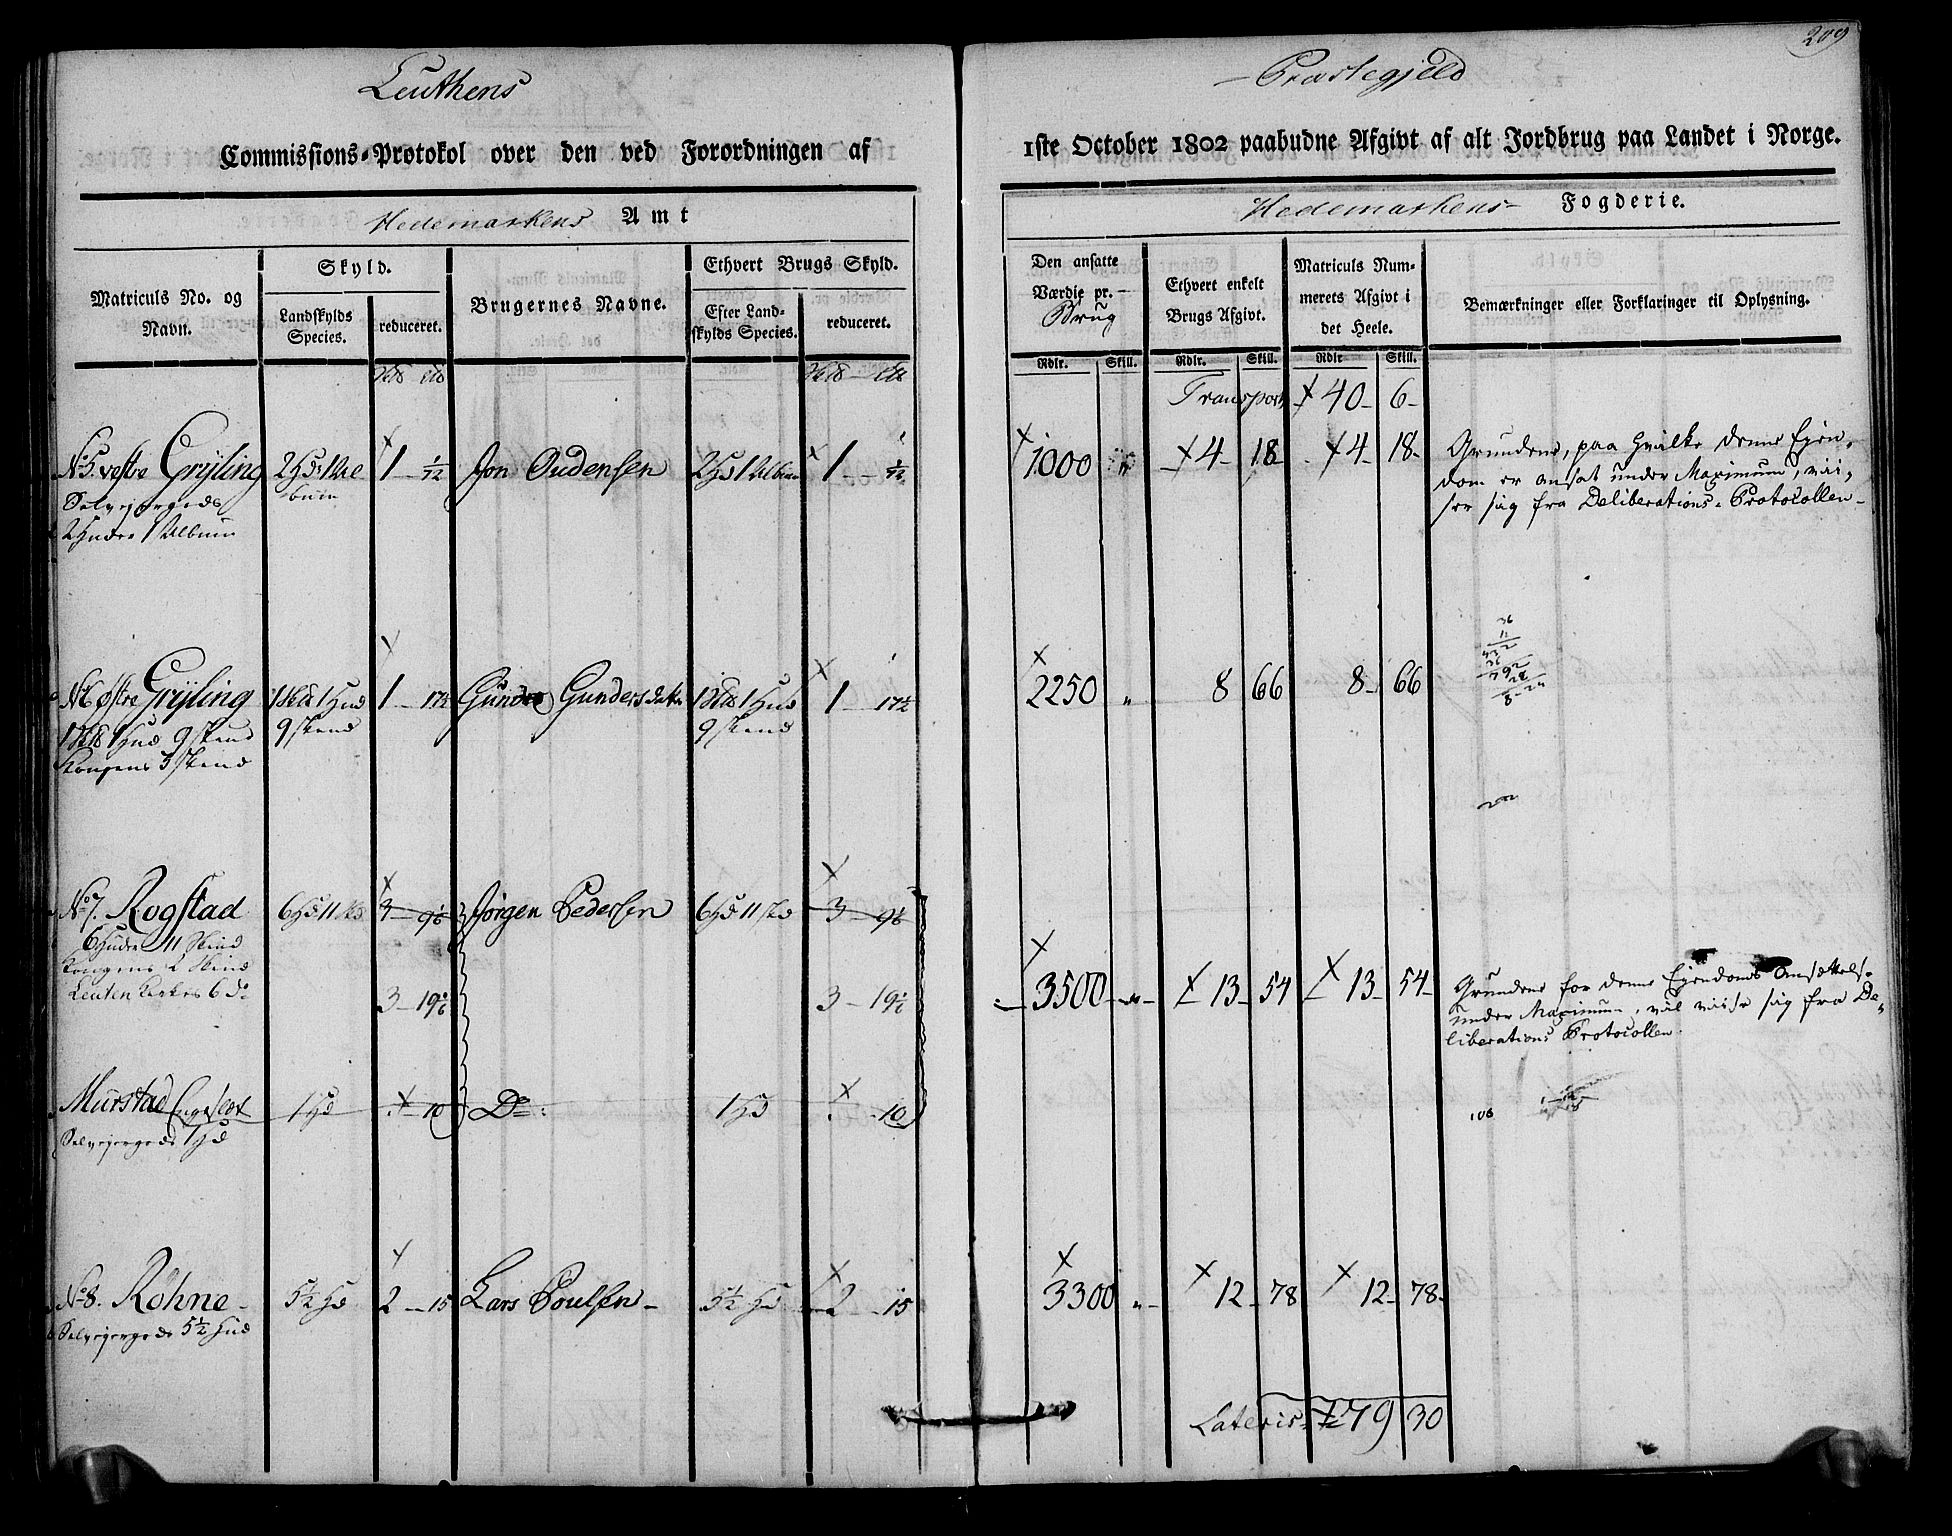 209
Leuthens
Præstegjeld
Commissions-Protokol over den ved Forordningen af
1ste October 1802 paabudne Afgivt af alt Jordbrug paa Landet i Norge.
Hedemarkens Amt
Hedemarkens Fogderie.
Matriculs No. og Navn.
Skyld.
Landskylds Species.
reduceret.
Brugernes Navne.
Ethvert Brugs Skyld.
Efter Landskylds Species.
reduceret.
Den ansatte Værdie pr. Brug
Ethvert enkelt Brugs Afgivt.
Matriculs Nummerets Afgivt i det Heele.
Bemærkninger eller Forklaringer til Oplysning.
Rdlr. Skill. Rdlr. Skill. Rdlr Skill.
Transport 40 - 6 -
No 5. vestre Grÿling 2 Hd 1 Al 1 - 1/12 Jon Oudensen 2 Hd 1 Album 1 - 1/12 1000 " 4 18 4 - 18 -
bum
Selvejergods
2 Huder 1 Album
Grundene, paa hvilke denne Ejen
dom er ansat under Maximum, vii,
ser sig fra Deliberations-Protocollen -
36
11
No 6 østre Grÿling 1 - 17½ Gunder Gundersen 1 - 17½ 2250 " 8 66 8 - 66
9 Skind
9 Skind
1 Hud 9 Skind
Kongens 3 Skind
No 7. Rogstad 6 Hd 11 Skd 3 - 9½ Jørgen Pedersen 6 Hd 11 Skd 3 - 9½
6 Huder 11 Skind
Kongens 2 Skind
Leuten Kirkes 6 do
3 - 19½ 3 - 19½ 3500 - " - 13 - 54 13 - 54 -
Grundene for denne Ejendoms Ansættelse
under Maximum, vil viise sig fra De-
liberations Protocollen.
Murstad Engeslæt 1 Hd 10 Do: 1 Hd - 10
Selvejergods 1 Hd
108
No 8. Rohne - 5½ Hd 2 - 15 Lars Poulsen - 5½ Hd 2 - 15 3300 " - 12 - 78 12 - 78 -
Selvejergods 5½ Hud
Lateris 79 30